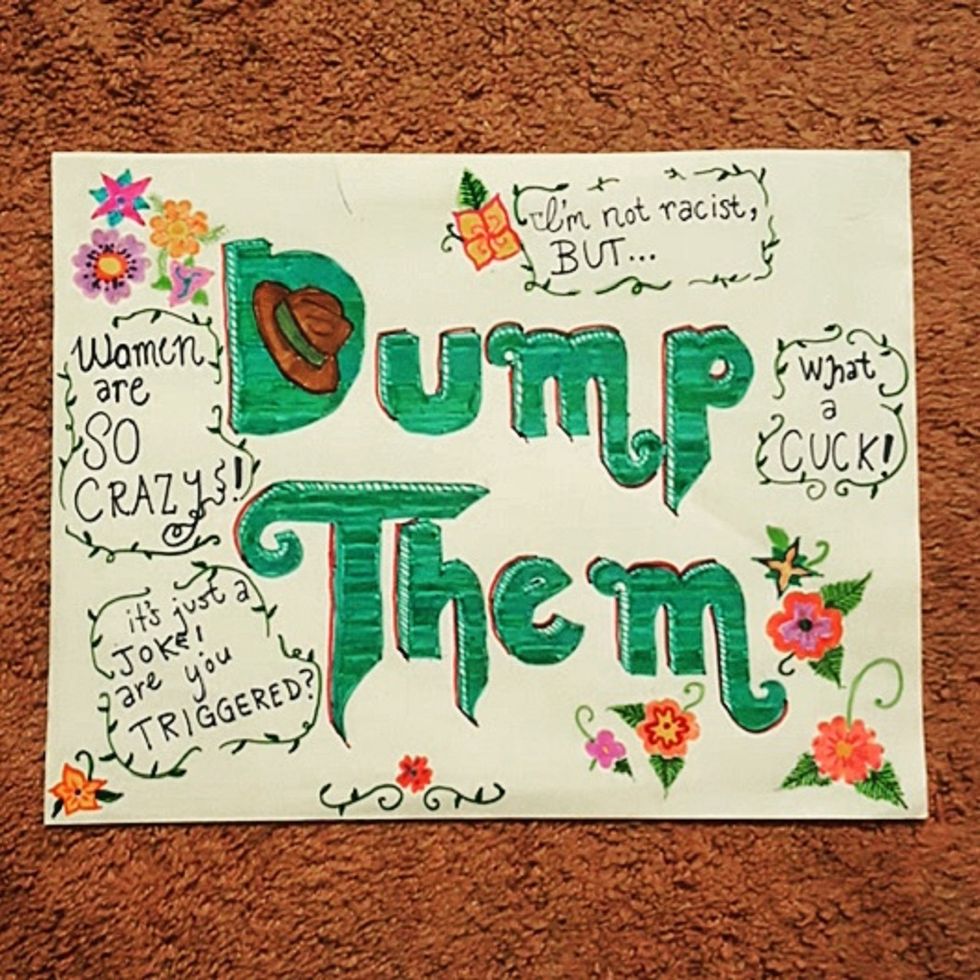 I'm not racist,
BUT...
Dump
Them
Women
are
SO
CRAZYS!
What
a
CUCK!
it's just a
JOKE!
are you
TRIGGERED?